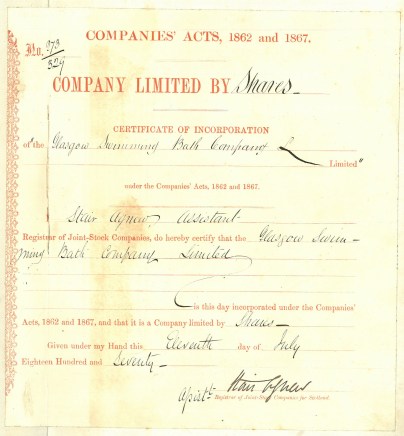 COMPANIES' ACTS, 1862 and 1867.
No. 373
329
COMPANY LIMITED BY Shares
CERTIFICATE OF INCORPORATION
of "the Glasgow Swimming Bath Company Limited"
under the Companies' Acts, 1862 and 1867.
Stair Agnew Assistant
Registrar of Joint-Stock Companies, do hereby certify that the Glasgow Swim-
ming Bath Company Limited
is this day incorporated under the Companies'
Acts, 1862 and 1867, and that it is a Company limited by Shares
Given under my Hand this Eleventh day of July
Eighteen Hundred and Seventy
Stair Agnew
Registrar of Joint-Stock Companies for Scotland.